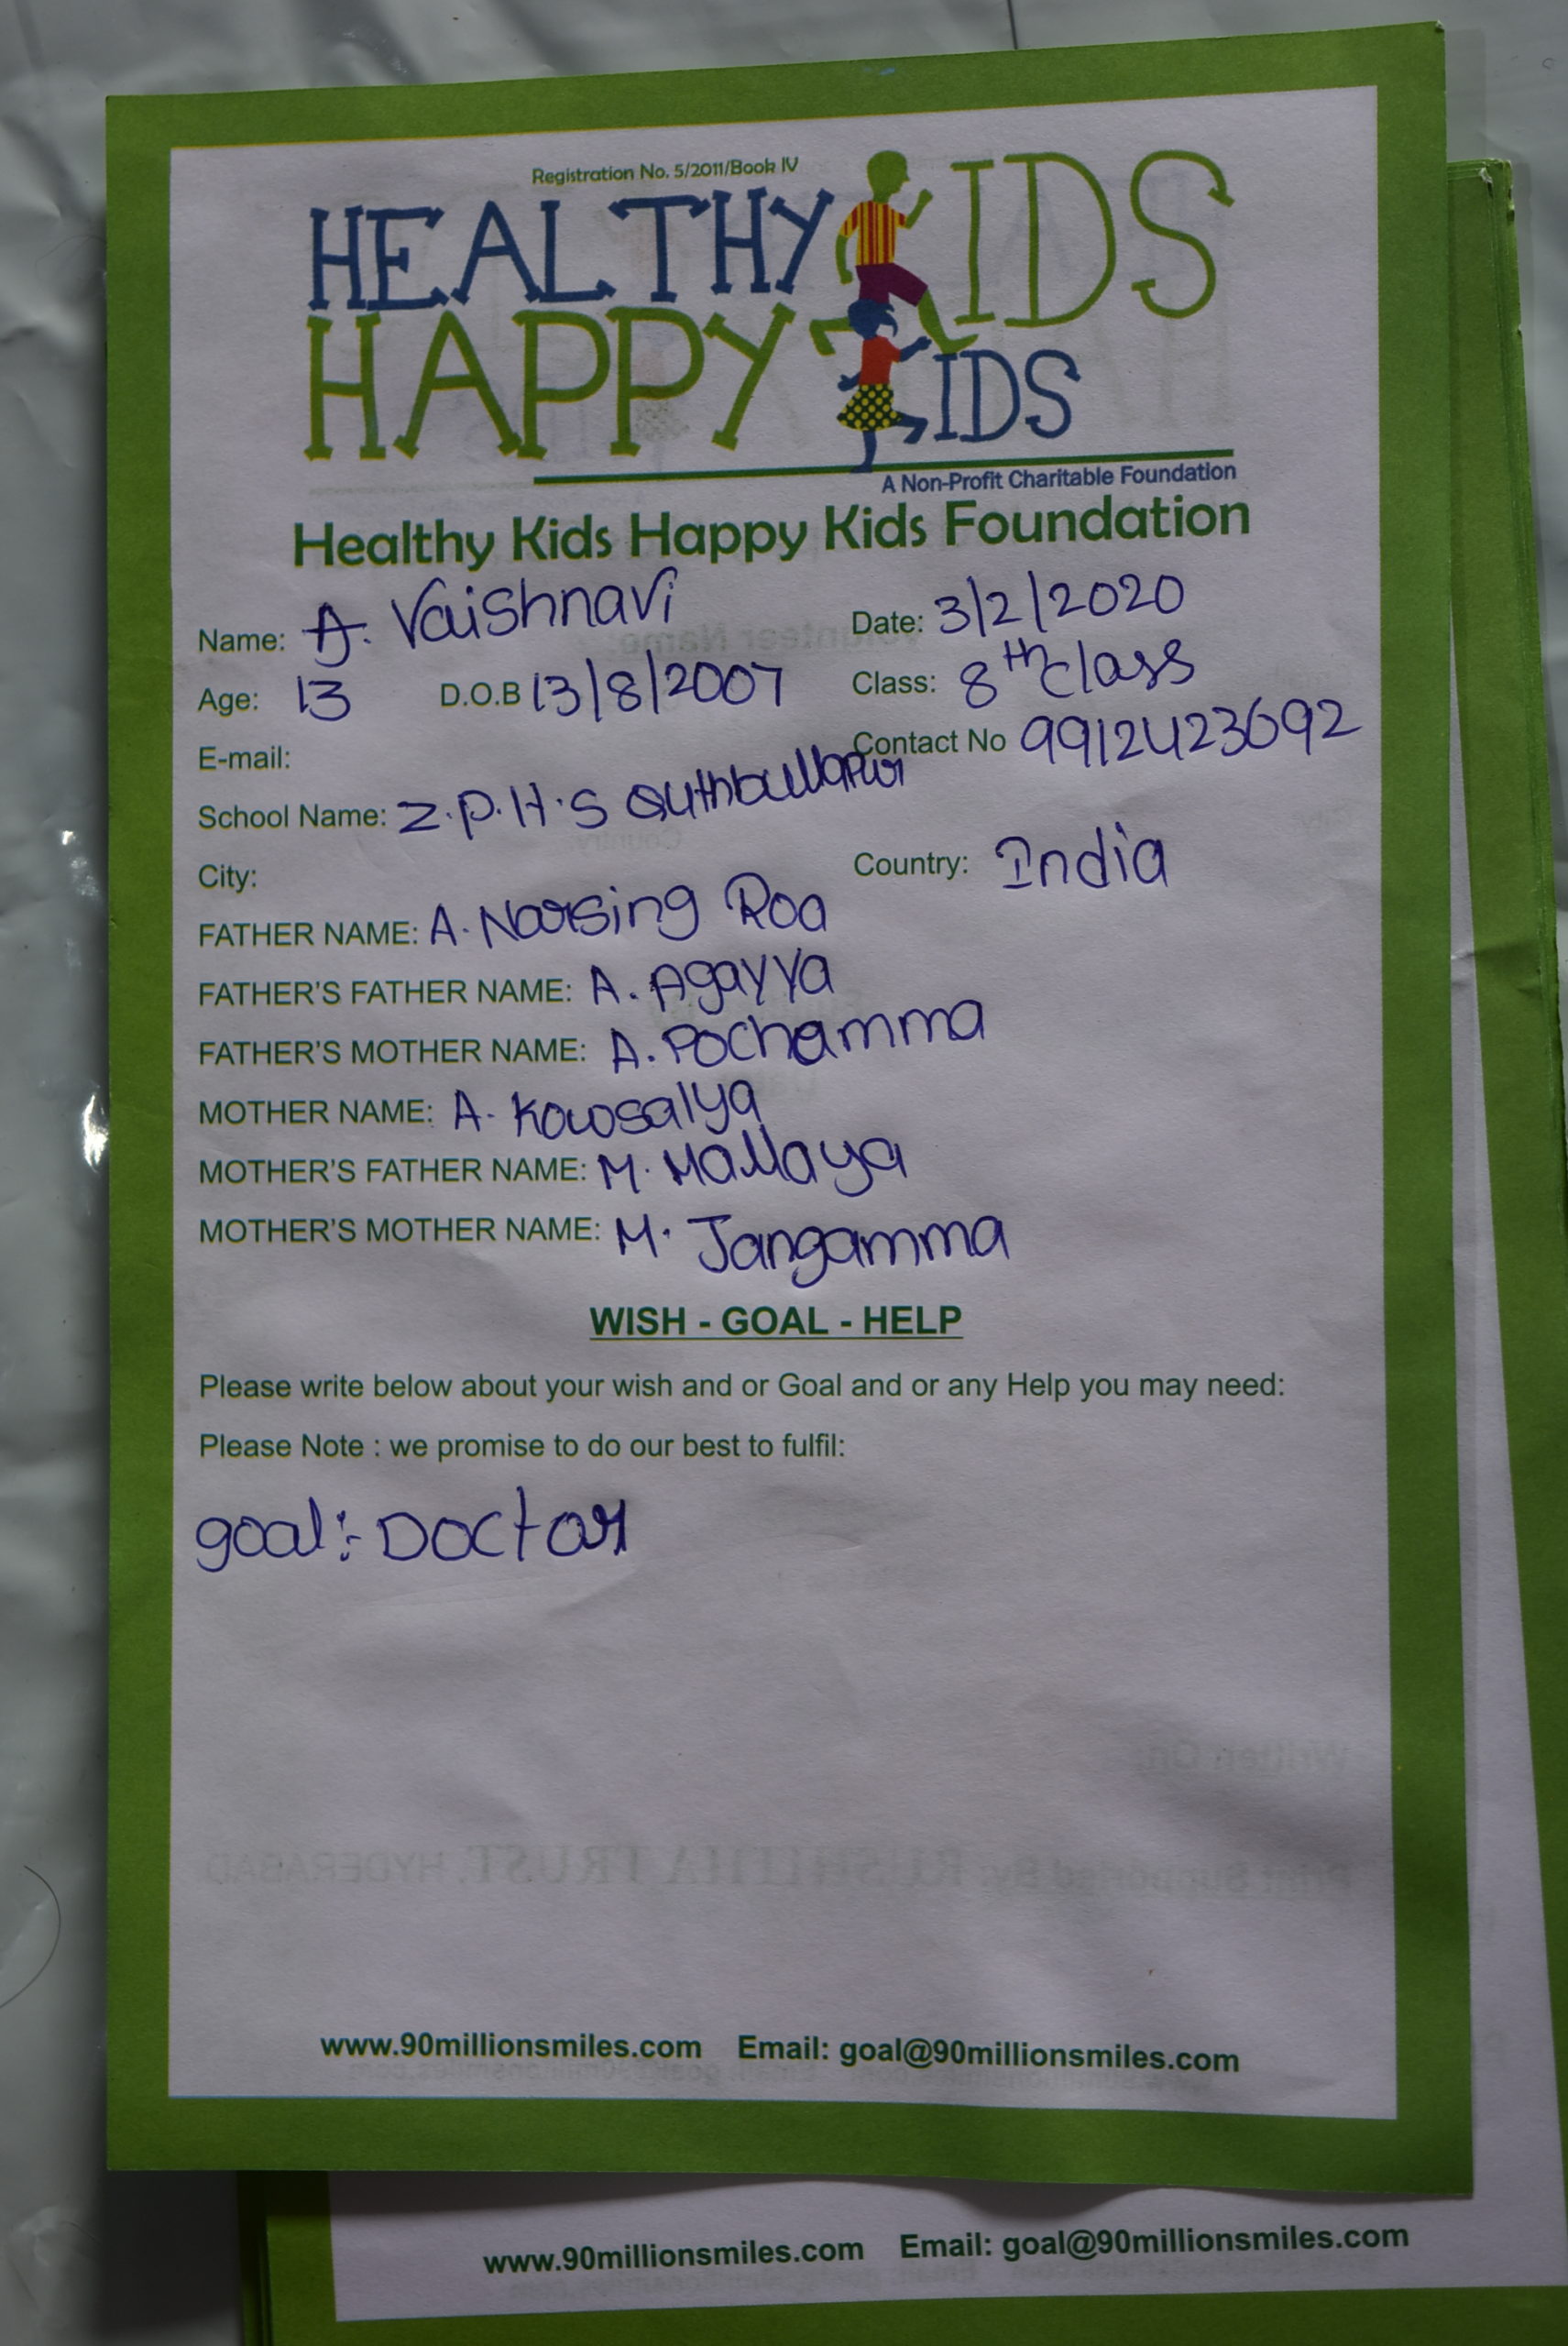 Registration No. 5/2011/Book IV
HEALTHY KIDS
HAPPY KIDS
A Non-Profit Charitable Foundation
Healthy Kids Happy Kids Foundation
Name: A. Vaishnavi Date: 3/2/2020
Age: 13 D.O.B 13/8/2007 Class: 8th class
E-mail: Contact No 9912423692
School Name: Z.P.H.S Quthbullapur
City: Country: India
FATHER NAME: A. Narsing Roa
FATHER'S FATHER NAME: A. Agayya
FATHER'S MOTHER NAME: A. Pochamma
MOTHER NAME: A. Kowsalya
MOTHER'S FATHER NAME: M. Mallaya
MOTHER'S MOTHER NAME: M. Jangamma
WISH - GOAL - HELP
Please write below about your wish and or Goal and or any Help you may need:
Please Note : we promise to do our best to fulfil:
goal:- Doctor
www.90millionsmiles.com Email: goal@90millionsmiles.com
www.90millionsmiles.com Email: goal@90millionsmiles.com